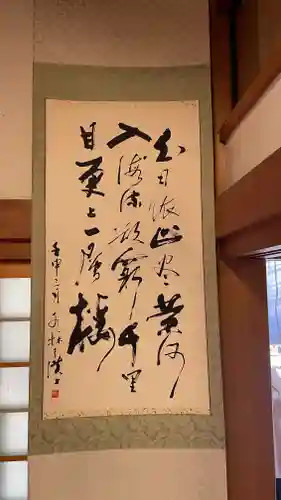 白日依山尽黄河
入海流欲窮千里
目更上一層樓
壬申二月